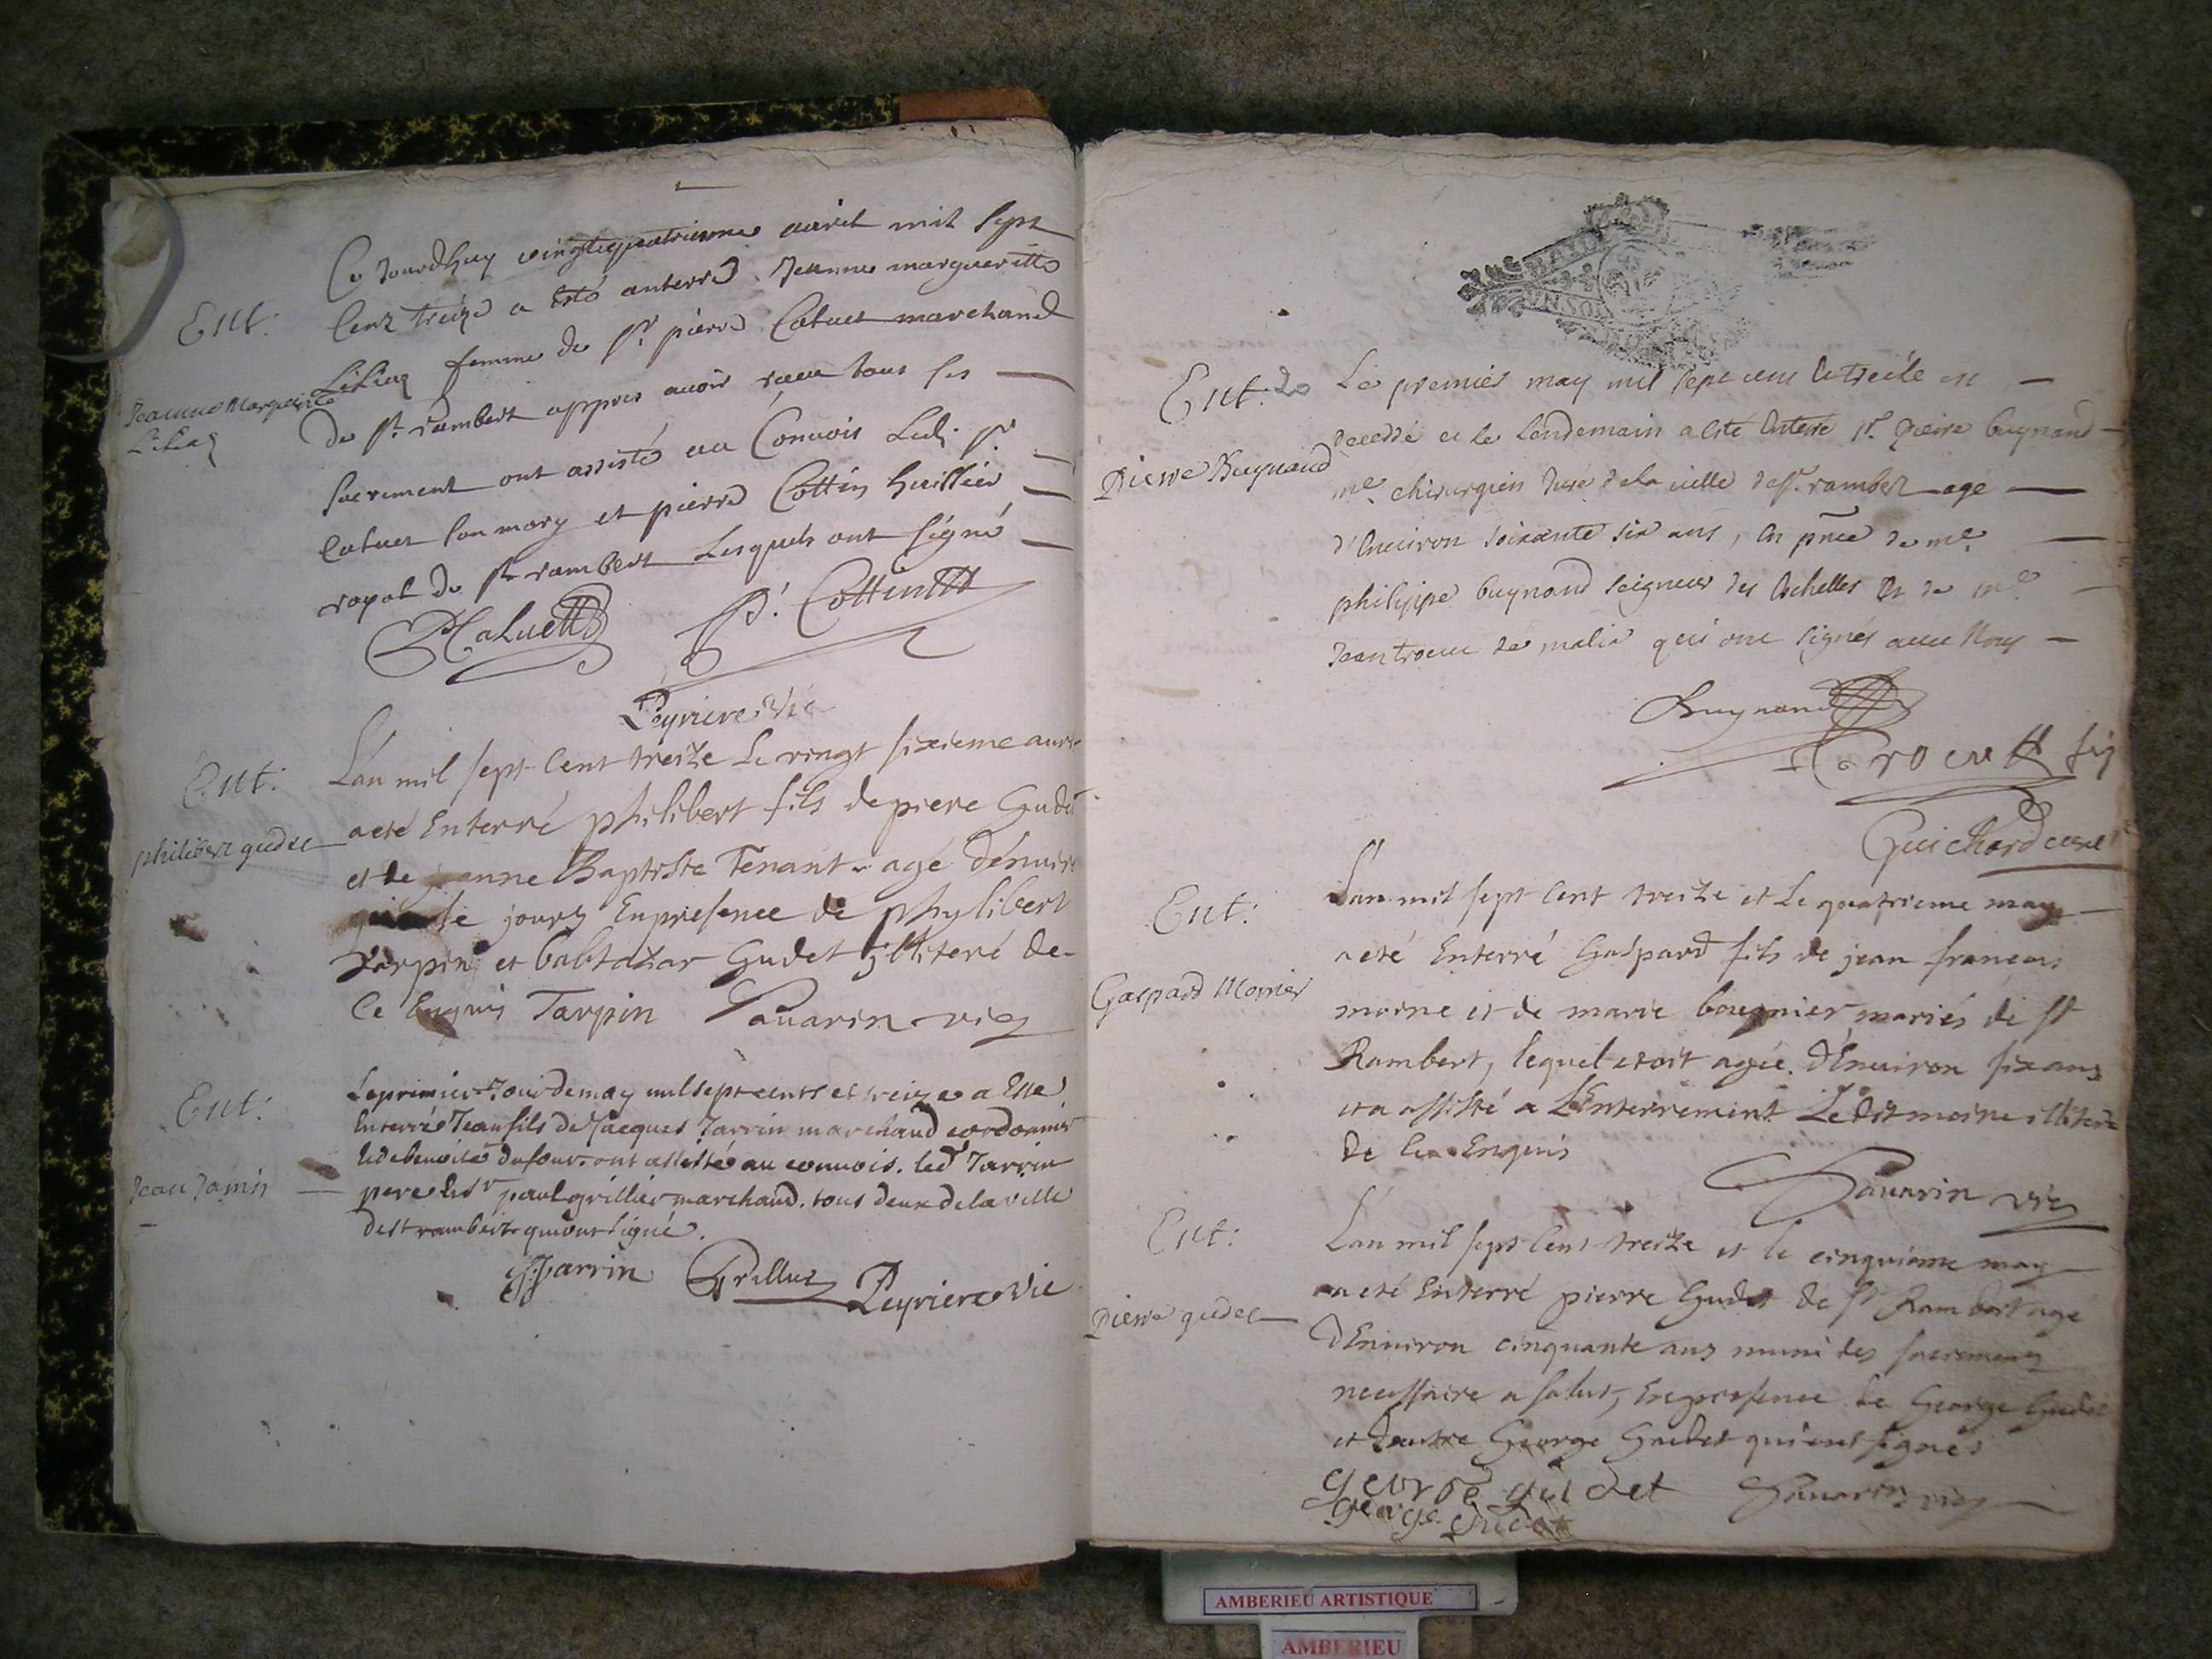 Ce Jourdhuy vingtequatrieme avril mil sept
Cent treize a esté anterré Jeanne margueritte
Ent:
femme de sr pierre Caluet marchand
Jeanne Marguerite
de st rambert appres avoir receu tous ses
sacrement ont assisté au Convois Led. sr
Caluet son mary et pierre Cottin huissier
royal de st rambert Lesquels ont signé
PCaluet P. Cottin
Peyriere Vic
Ent:
L'an mil sept Cent treize Le vingt sixieme avri
philibert gudet
a eté Enterré philibert fils de piere Gudet
et de jeanne Baptiste Tenant agé dénviro
jours En presence de phylibert
Tarpin et baltazar Gudet illiteré de
Ce Enquis Tarpin Sauarin vic
Ent:
Le premier Jour de may mil sept cents et treize a Esté
Enterré Jean fils de Jacques Jarrin marchand cordonnier
et de benoite dufour. ont assisté au convois. led Jarrin
Jean Jarrin
pere le sr paul grillier marchand. tous deux de la ville
de st rambert qui ont signé.
J Jarrin Grillier Peyriere Vic
Ent: 20
Le premier may mil sept cens et treize est
decedé et le Lendemain a esté Enterré sr. Pierre Buynand
Pierre Buynand
me chirurgien Juré de la ville de st. rambert age
d'Environ soixante six ans, en pnce de me
philippe buynand seigneur des Echelles et de me
Jean trocu de malix qui ont signés avec Nous
Buynand
Trocu
Guichard curé
Ent:
L'an mil sept Cent treize et Le quatrieme may
a eté Enterré Gaspard fils de jean francois
Gaspard Moine
moine et de marie bougnier mariés de st
Rambert, lequel etoit agée d'Environ six ans
et a assisté a L'Enterrement Ledit moine illiteré
de Ce Enquis
Sauarin vic
Ent:
L'an mil sept Cent treize et le cinquieme may
a eté Enterré pierre Gudet de st Rambert agé
Pierre gudet
D'Environ cinquante ans muni des sacremens
necessaire a salut, En presence de George Gudet
et d'autre George Gudet qui ont signés
george gudet Sauarin vic
george gudet
AMBERIEU ARTISTIQUE
AMBERIEU